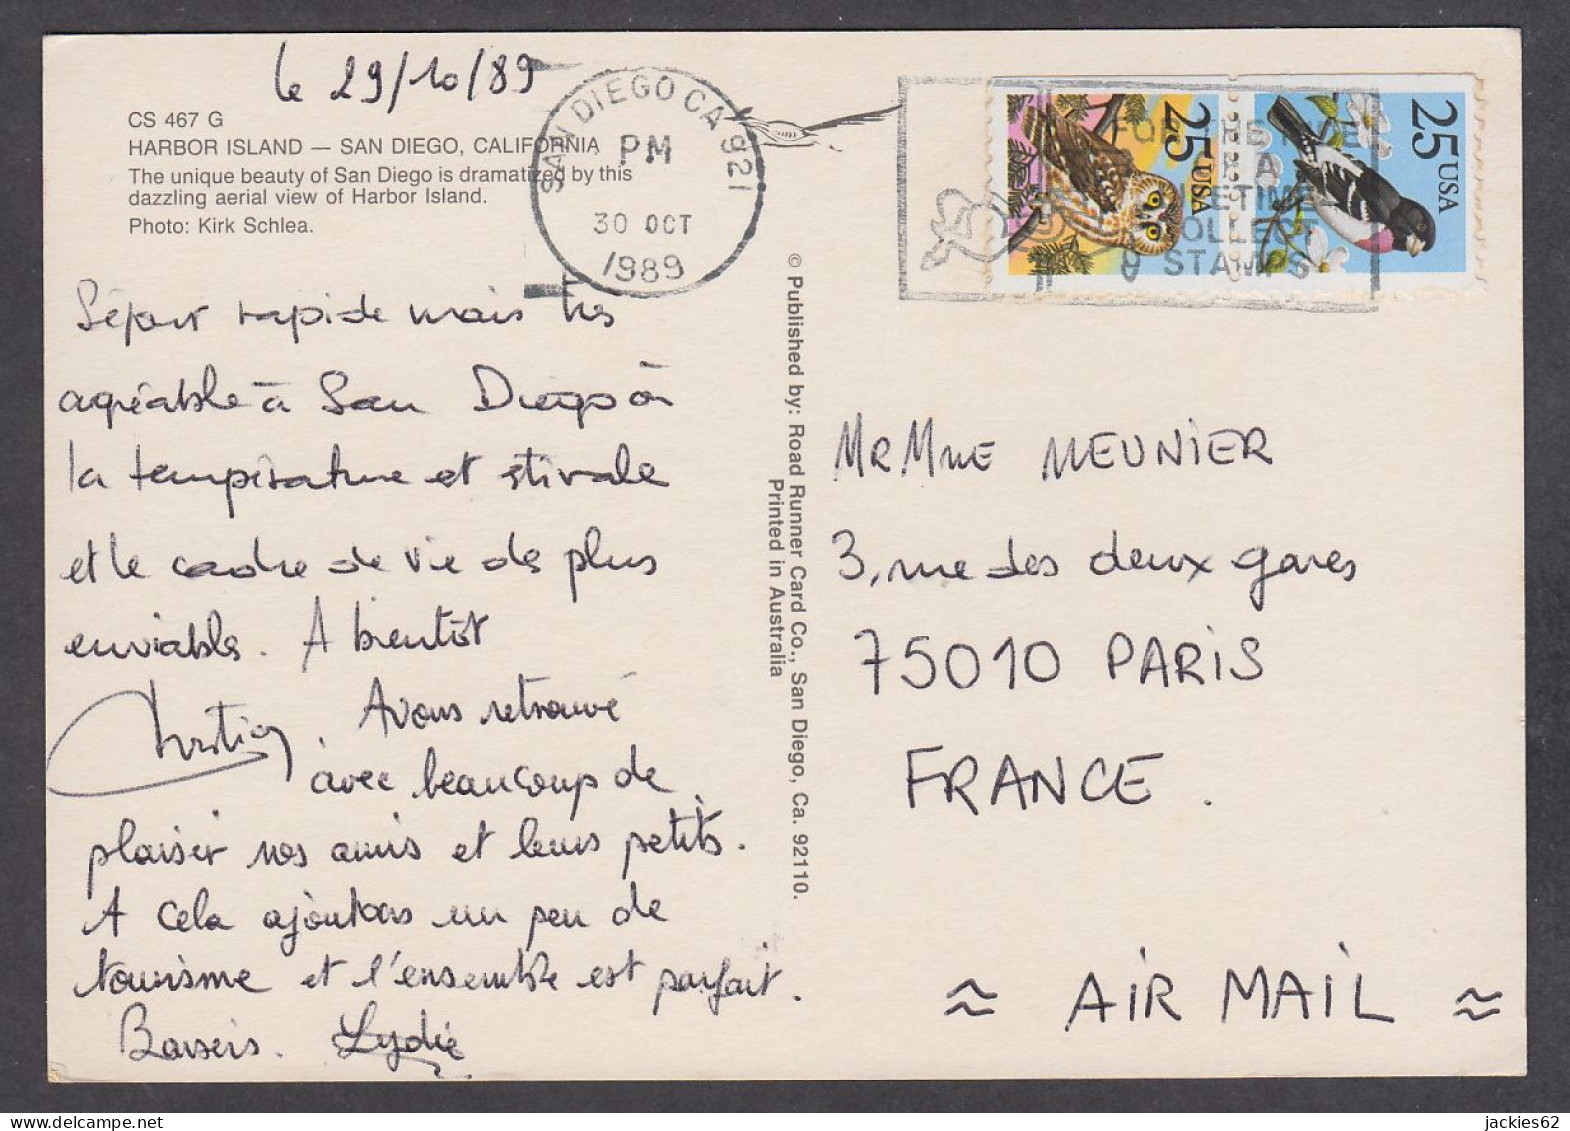 le 29/10/89
CS 467 G
HARBOR ISLAND — SAN DIEGO, CALIFORNIA
The unique beauty of San Diego is dramatized by this
dazzling aerial view of Harbor Island.
Photo: Kirk Schlea.
SAN DIEGO CA 921
PM
30 OCT
1989
FOR THE
A
LIFETIME
COLLECT
STAMPS
25 USA
25 USA
Séjour rapide mais très
agréable à San Diego où
la température est estivale
et le cadre de vie des plus
enviables. A bientôt
Christian. Avons retrouvé
avec beaucoup de
plaisir nos amis et leurs petits.
A cela ajoutons un peu de
tourisme et l'ensemble est parfait.
Baisers. Lydie
© Published by: Road Runner Card Co., San Diego, Ca. 92110.
Printed in Australia
MR MME MEUNIER
3, rue des deux gares
75010 PARIS
FRANCE.
≈ AIR MAIL ≈
jackies62